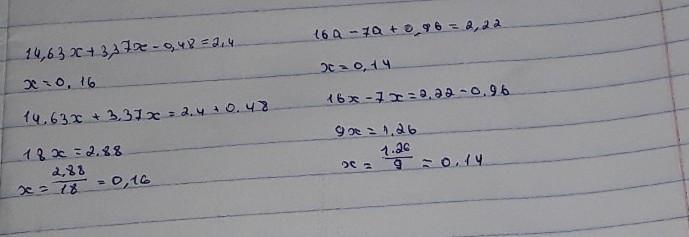 14,63x+3,37x-0,48=2,4
x=0,16
14,63x+3,37x=2,4+0,48
18x=2,88
x=2,88/18=0,16
16a-7a+0,96=2,22
x=0,14
16x-7x=2,22-0,96
9x=1,26
x=1,26/9=0,14